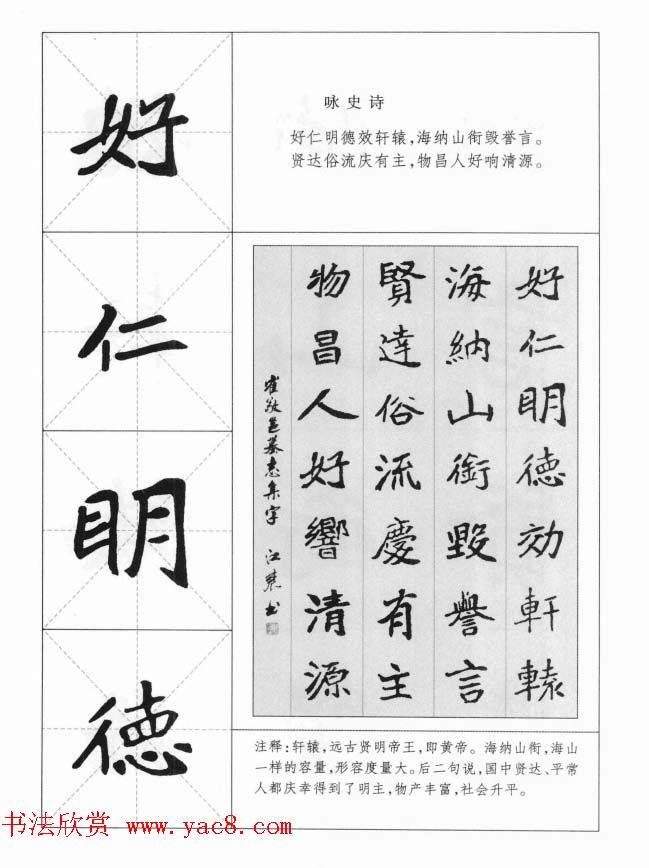 好
仁
明
德
咏史诗
好仁明德效轩辕,海纳山衔毁誉言。
贤达俗流庆有主,物昌人好响清源。
好仁明德効軒轅
海納山銜毀譽言
賢達俗流慶有主
物昌人好響清源
崔敬邕墓志集字 江 书
注释:轩辕,远古贤明帝王,即黄帝。海纳山衔,海山
一样的容量,形容度量大。后二句说,国中贤达、平常
人都庆幸得到了明主,物产丰富,社会升平。
书法欣赏 www.yac8.com